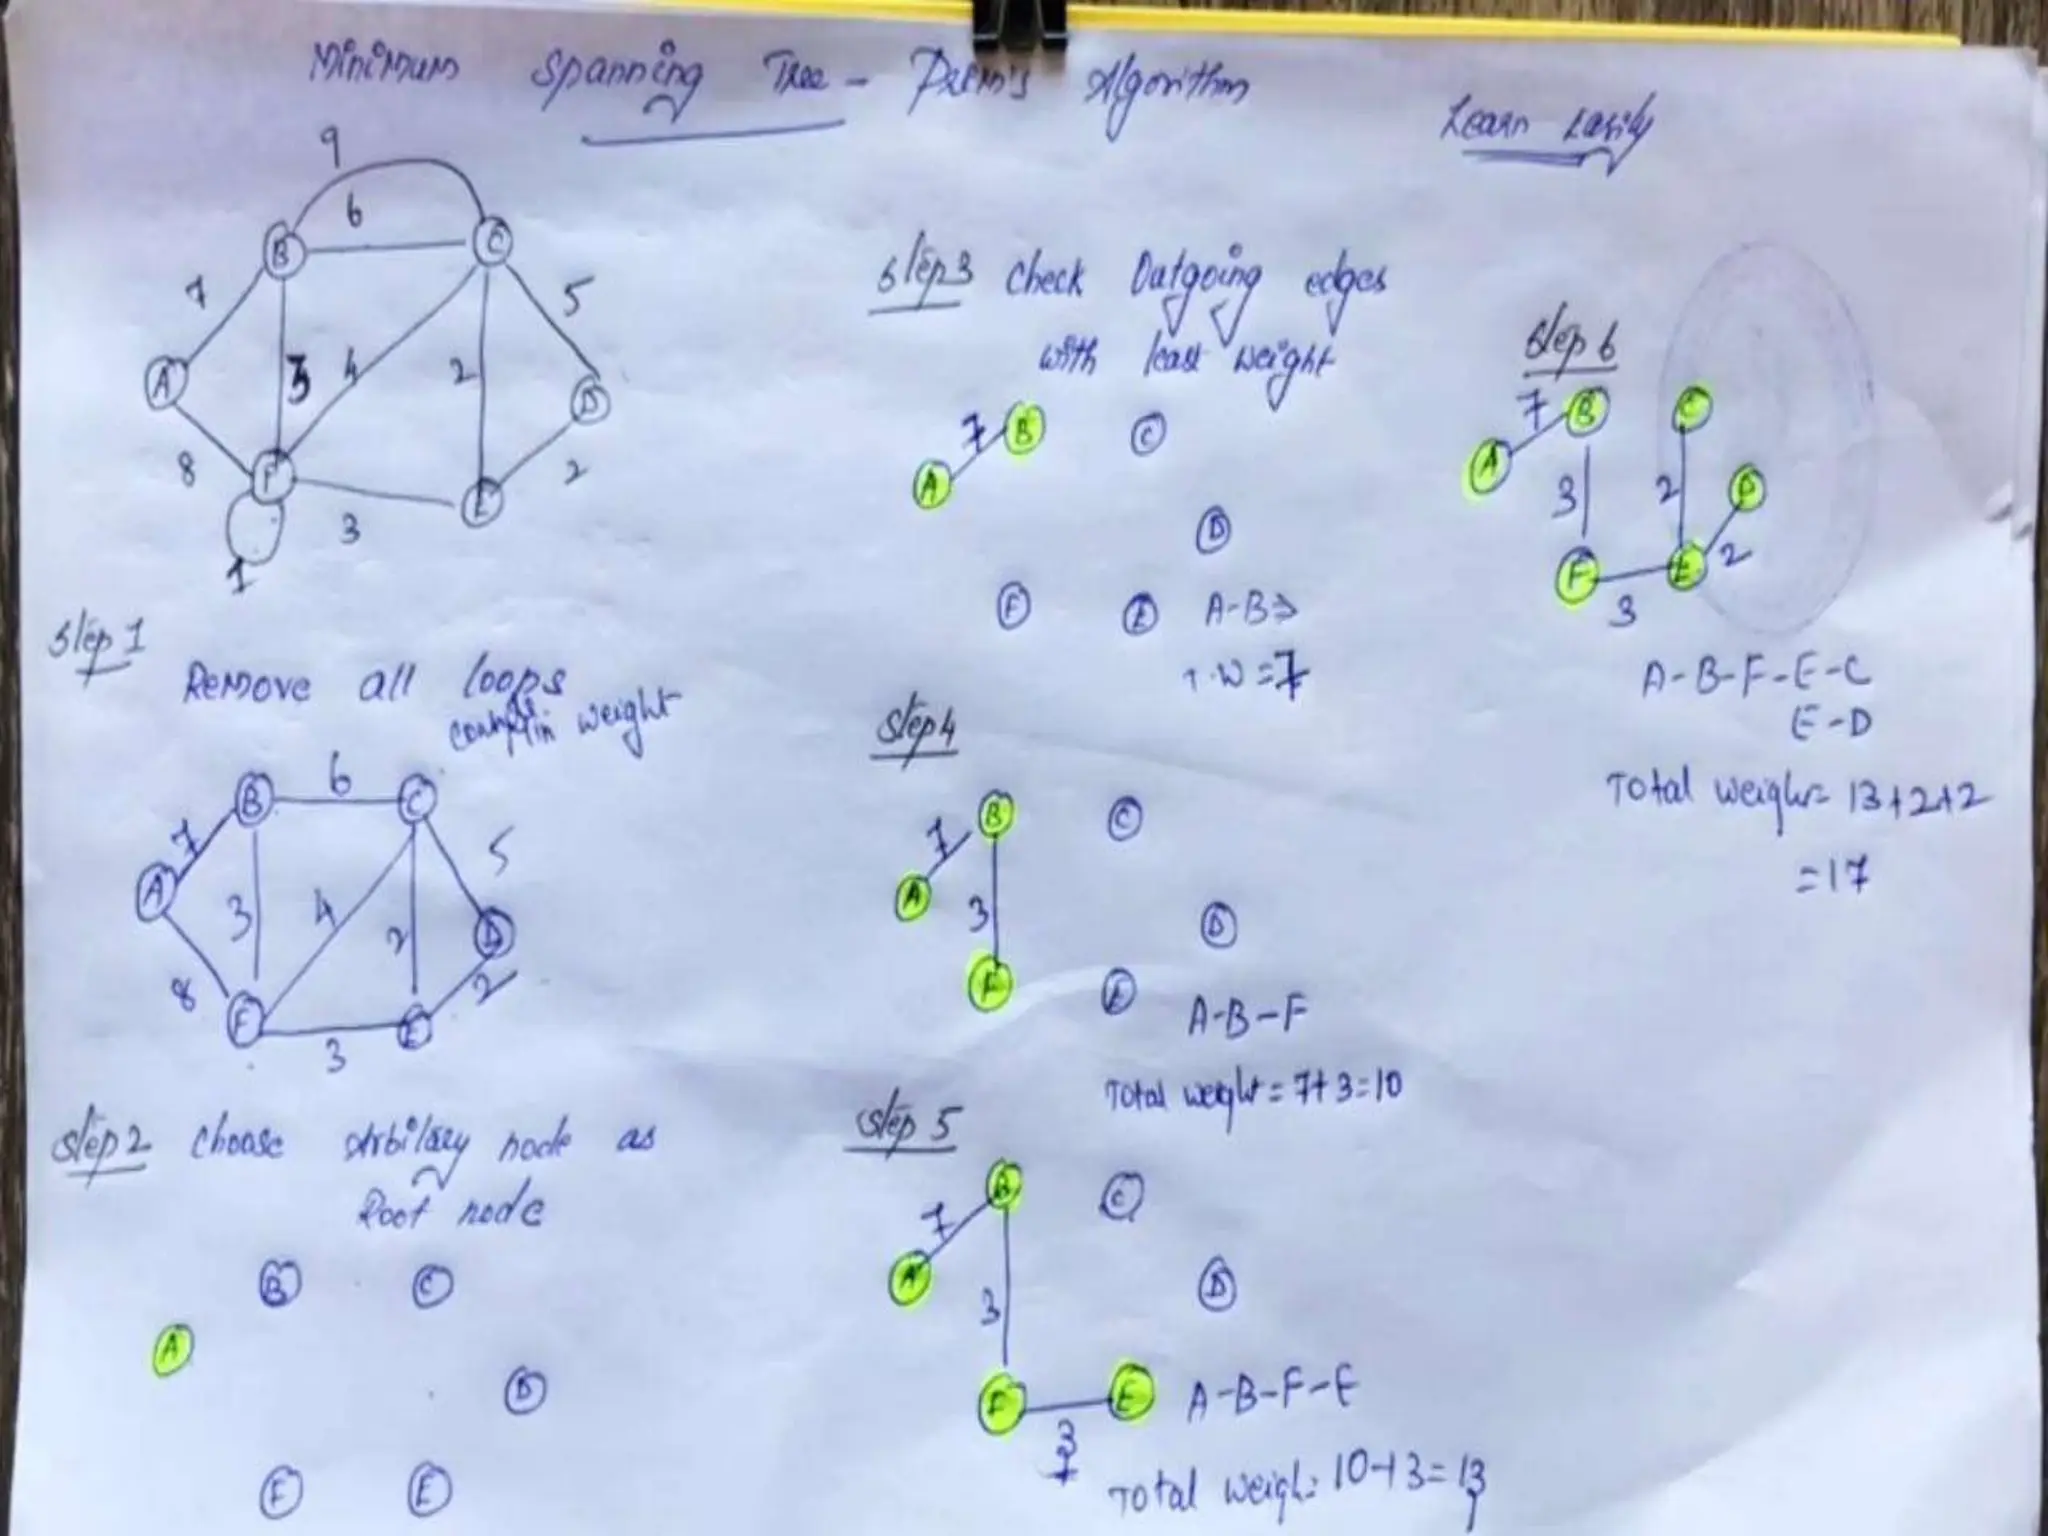 Minimum Spanning Tree - Prim's Algorithm
Learn Easily
9
6
B C
7 5
3 4 2
A D
8 F E 2
3
1
Step 1
Remove all loops
weight
6
B C
7 5
A 3 4 2 D
8 2
F E
3
Step 2 choose Arbitary node as
Root node
B C
A
D
F E
Step 3 check Outgoing edges
with least weight
7 B C
A
D
F E A-B⇒
T.W = 7
Step 4
B C
7
A 3 D
F E A-B-F
Total weight = 7+3=10
Step 5
B C
7
A D
3
F E A-B-F-E
3
Total weigh: 10+3=13
Step 6
7 B C
A 3 2 D
F E 2
3
A-B-F-E-C
E-D
Total weight= 13+2+2
=17